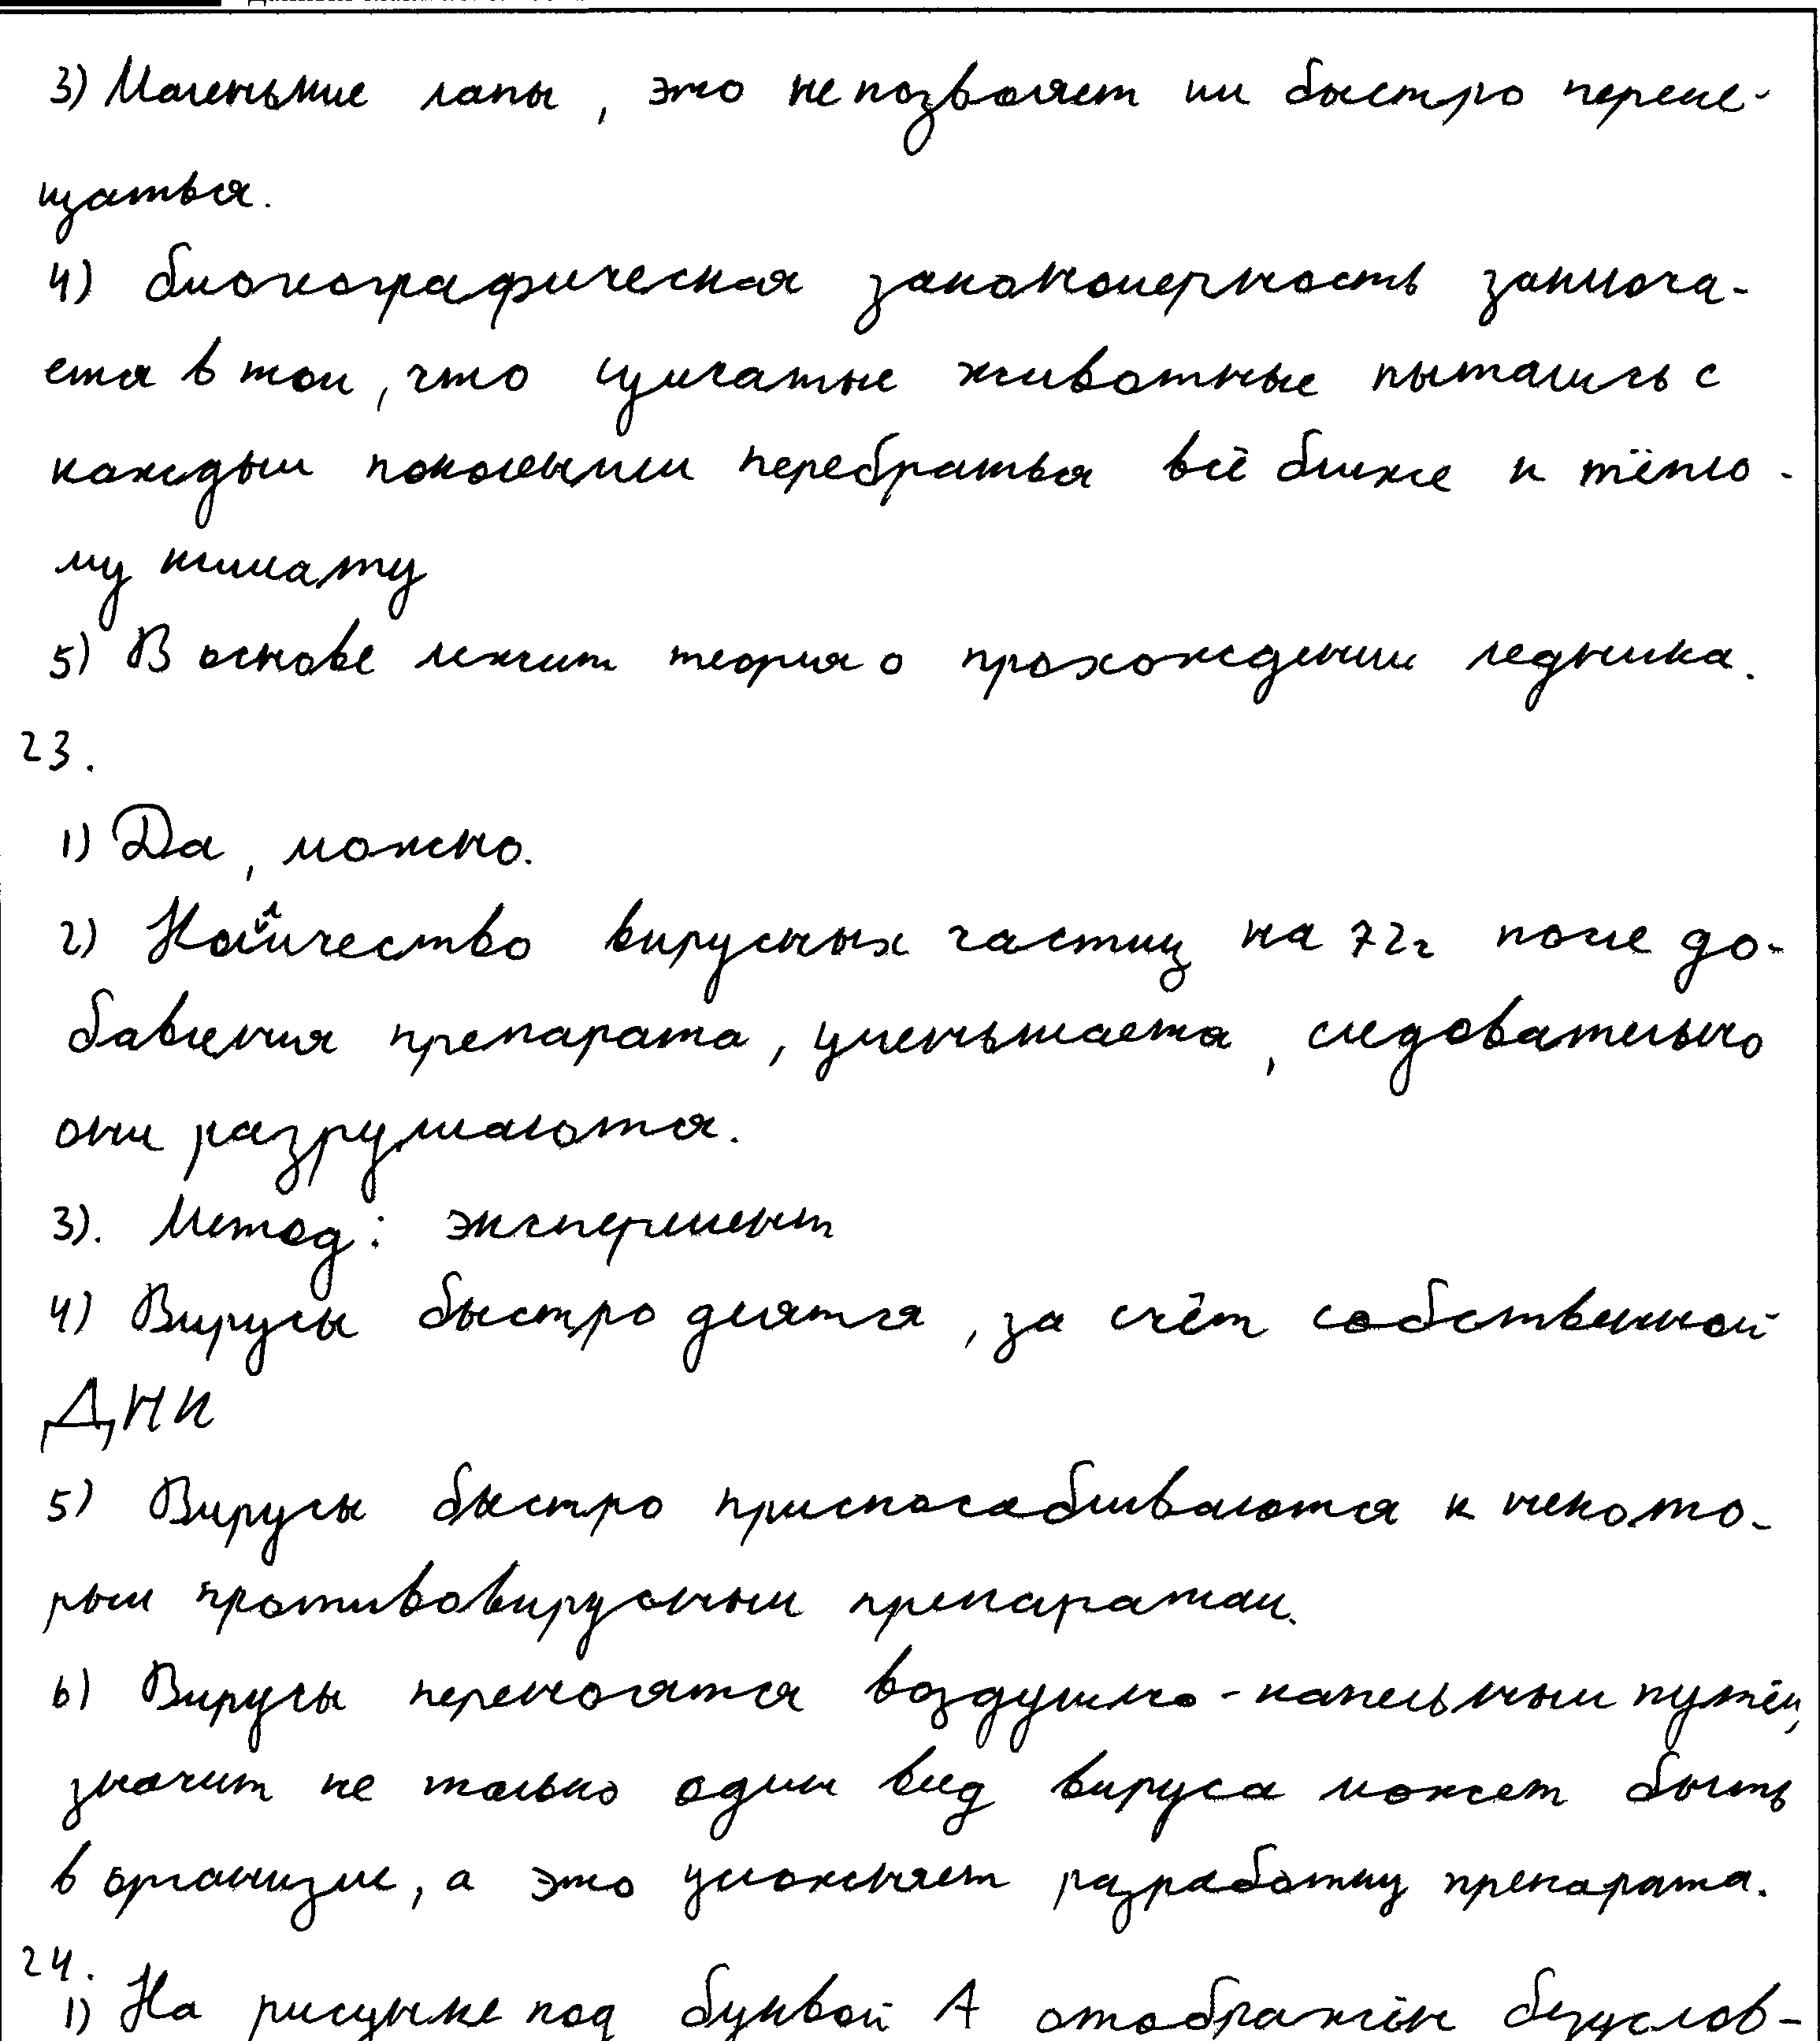 3) Маленькие лапы, это не позволяет им быстро переме-
щаться.
4) биогеографическая закономерность заключа-
ется в том, что сумчатые животные пытались с
каждым поколением перебраться всё ближе к тёпло-
му климату
5) В основе лежит теория о прохождении ледника.
23.
1) Да, можно.
2) Количество вирусных частиц на 72ч после до-
бавления препарата, уменьшается, следовательно
они разрушаются.
3). Метод: эксперемент
4) Вирусы быстро делятся, за счёт собственной
ДНК
5) Вирусы быстро приспосабливаются к некото-
рым противовирусным препаратам.
6) Вирусы переносятся воздушно-капельным путём,
значит не только один вид вируса может быть
в организме, а это усложняет разработку препарата.
24.
1) На рисунке под буквой А отображён безуслов-